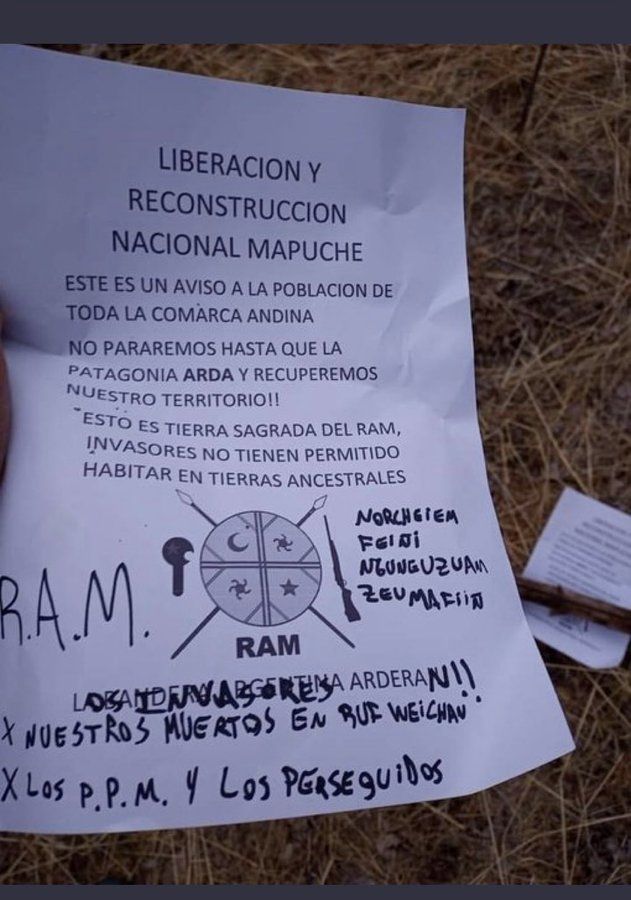 LIBERACION Y
RECONSTRUCCION
NACIONAL MAPUCHE
ESTE ES UN AVISO A LA POBLACION DE
TODA LA COMARCA ANDINA
NO PARAREMOS HASTA QUE LA
PATAGONIA ARDA Y RECUPEREMOS
NUESTRO TERRITORIO!!
"ESTO ES TIERRA SAGRADA DEL RAM,
INVASORES NO TIENEN PERMITIDO
HABITAR EN TIERRAS ANCESTRALES
NORCHEIEM
FEIJI
NGUNGUZUAM
ZEUMAFIIN
R.A.M.
RAM
LA BANDERA ARGENTINA ARDERAN!!
LOS INVASORES
X NUESTROS MUERTOS EN RUF WEICHAN
X LOS P.P.M. Y LOS PERSEGUIDOS